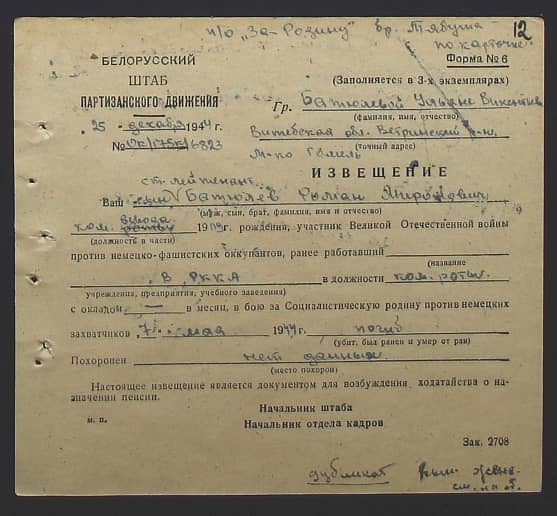 п/о "За-Родину" бр. Тябута 12
по карточке
БЕЛОРУССКИЙ
ШТАБ
ПАРТИЗАНСКОГО ДВИЖЕНИЯ
Форма № 6
(Заполняется в 3-х экземплярах)
25 декабря 1944 г.
Гр. Батюлевой Ульяне Викентьев
(фамилия, имя, отчество)
№ 6823
Витебская обл. Ветринский р-н.
(точный адрес)
м-ко Гомель
ИЗВЕЩЕНИЕ
ст. лейтенант
Ваш Батюлев Роман Миронович
(муж, сын, брат, фамилия, имя и отчество)
взвода
ком. роты 19 рождения, участник Великой Отечественной войны
(должность в части)
против немецко-фашистских оккупантов, ранее работавший
(название
в РККА в должности ком. роты
учреждения, предприятия, учебного заведения)
с окладом — в месяц, в бою за Социалистическую родину против немецких
захватчиков 7 мая 1944 г. погиб
(убит, был ранен и умер от ран)
Похоронен нет данных
(место похорон)
Настоящее извещение является документом для возбуждения, ходатайства о на-
значении пенсии.
Начальник штаба
м. п. Начальник отдела кадров
Зак. 2708
дубликат жене